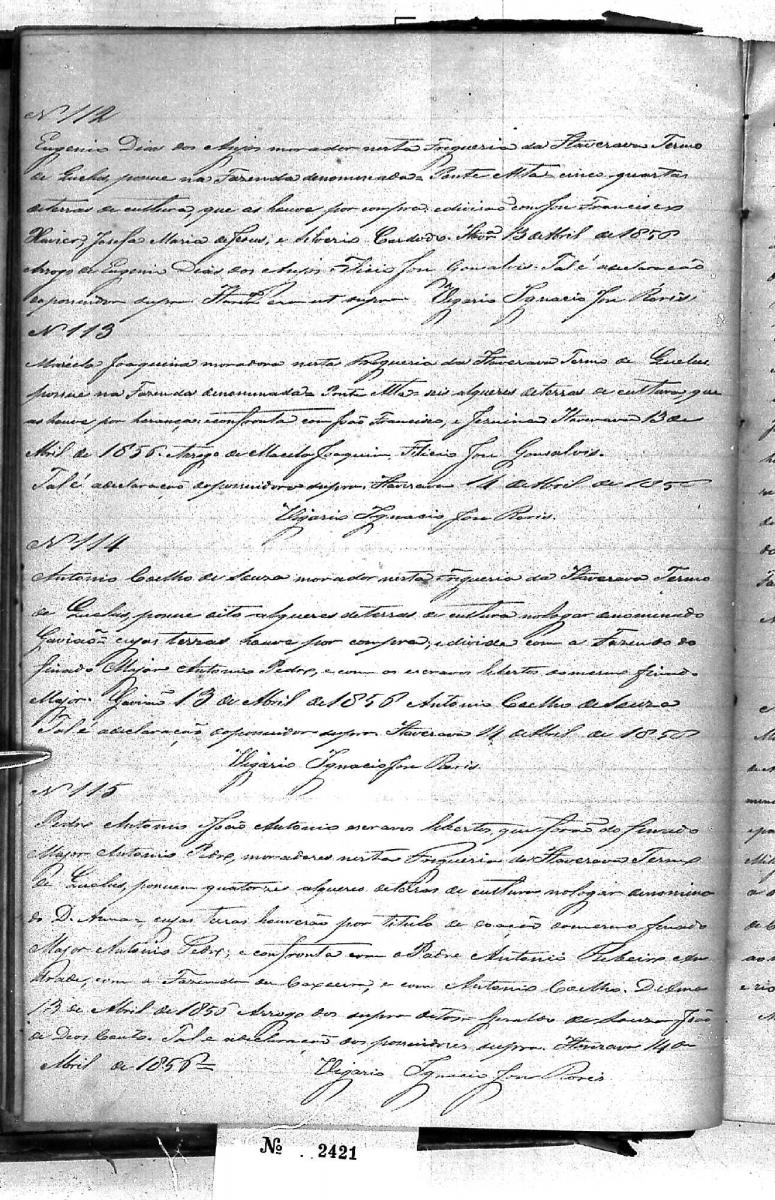 Nº 112
Eugenio Dias dos Anjos morador nesta Fregueria da Itaverava Termo
de Queluz, posue na Fazenda denominada Ponte Alta cinco quartas
deterras de cultura, que as houve por compra, edivide com José Francisco
Xavier, Josefa Maria de Jesus, e Liberio Cardoso. Itavª 13 de Abril de 1856
Arrogo de Eugenio Dias dos Anjos Felicio José Gonsalvis. Tal é adeclaração
dopossuidor supra Itavª era ut supra Vigario Ignacio José
Nº 113
Joaquina moradora nesta Fregueria da Itaverava Termo de Queluz
possue na Fazenda denominada Ponte Alta seis alqueres deterras de cultura, que
as houve por herança, confronta com João Francisco, e Itaverava 13 de
Abril de 1856. Arrogo de Joaquina Felicio José Gonsalvis.
Tal é adeclaração dopossuidora supra. Itaverava 14 de Abril de 1856
Vigario Ignacio José
Nº 114
Antonio Coelho de Souza morador nesta Fregueria da Itaverava Termo
de Queluz, posue oito alqueres deterras de cultura nologar denominado
Gavião cujas terras houve por compra, e divide com a Fazenda do
finado Major Antonio Pedro, e com os escravos libertos domesmo finado
Major. Gavião 13 de Abril de 1856 Antonio Coelho de Souza
Tal é adeclaração dopossuidor supra. Itaverava 14 de Abril de 1856
Vigario Ignacio José
Nº 115
Pedro Antonio João Antonio escravos libertos, que forão do finado
Major Antonio Pedro, moradores nesta Fregueria da Itaverava Termo
de Queluz, possuem quatorze alqueres deterras de cultura nologar denomina
do D. Anna, cujas terras houverão por titulo de doação domesmo finado
Major Antonio Pedro; e confronta com o Padre Antonio Ribeiro de An
drade, com a Fazenda da Caxoeira, e com Antonio Coelho. D. Anna
13 de Abril de 1856 Arrogo dos supra ditos Geraldo de Souza João
de Deos Couto. Tal é adeclaração dos possuidores supra. Itaverava 14 de
Abril de 1856 Vigario Ignacio José
Nº 2421